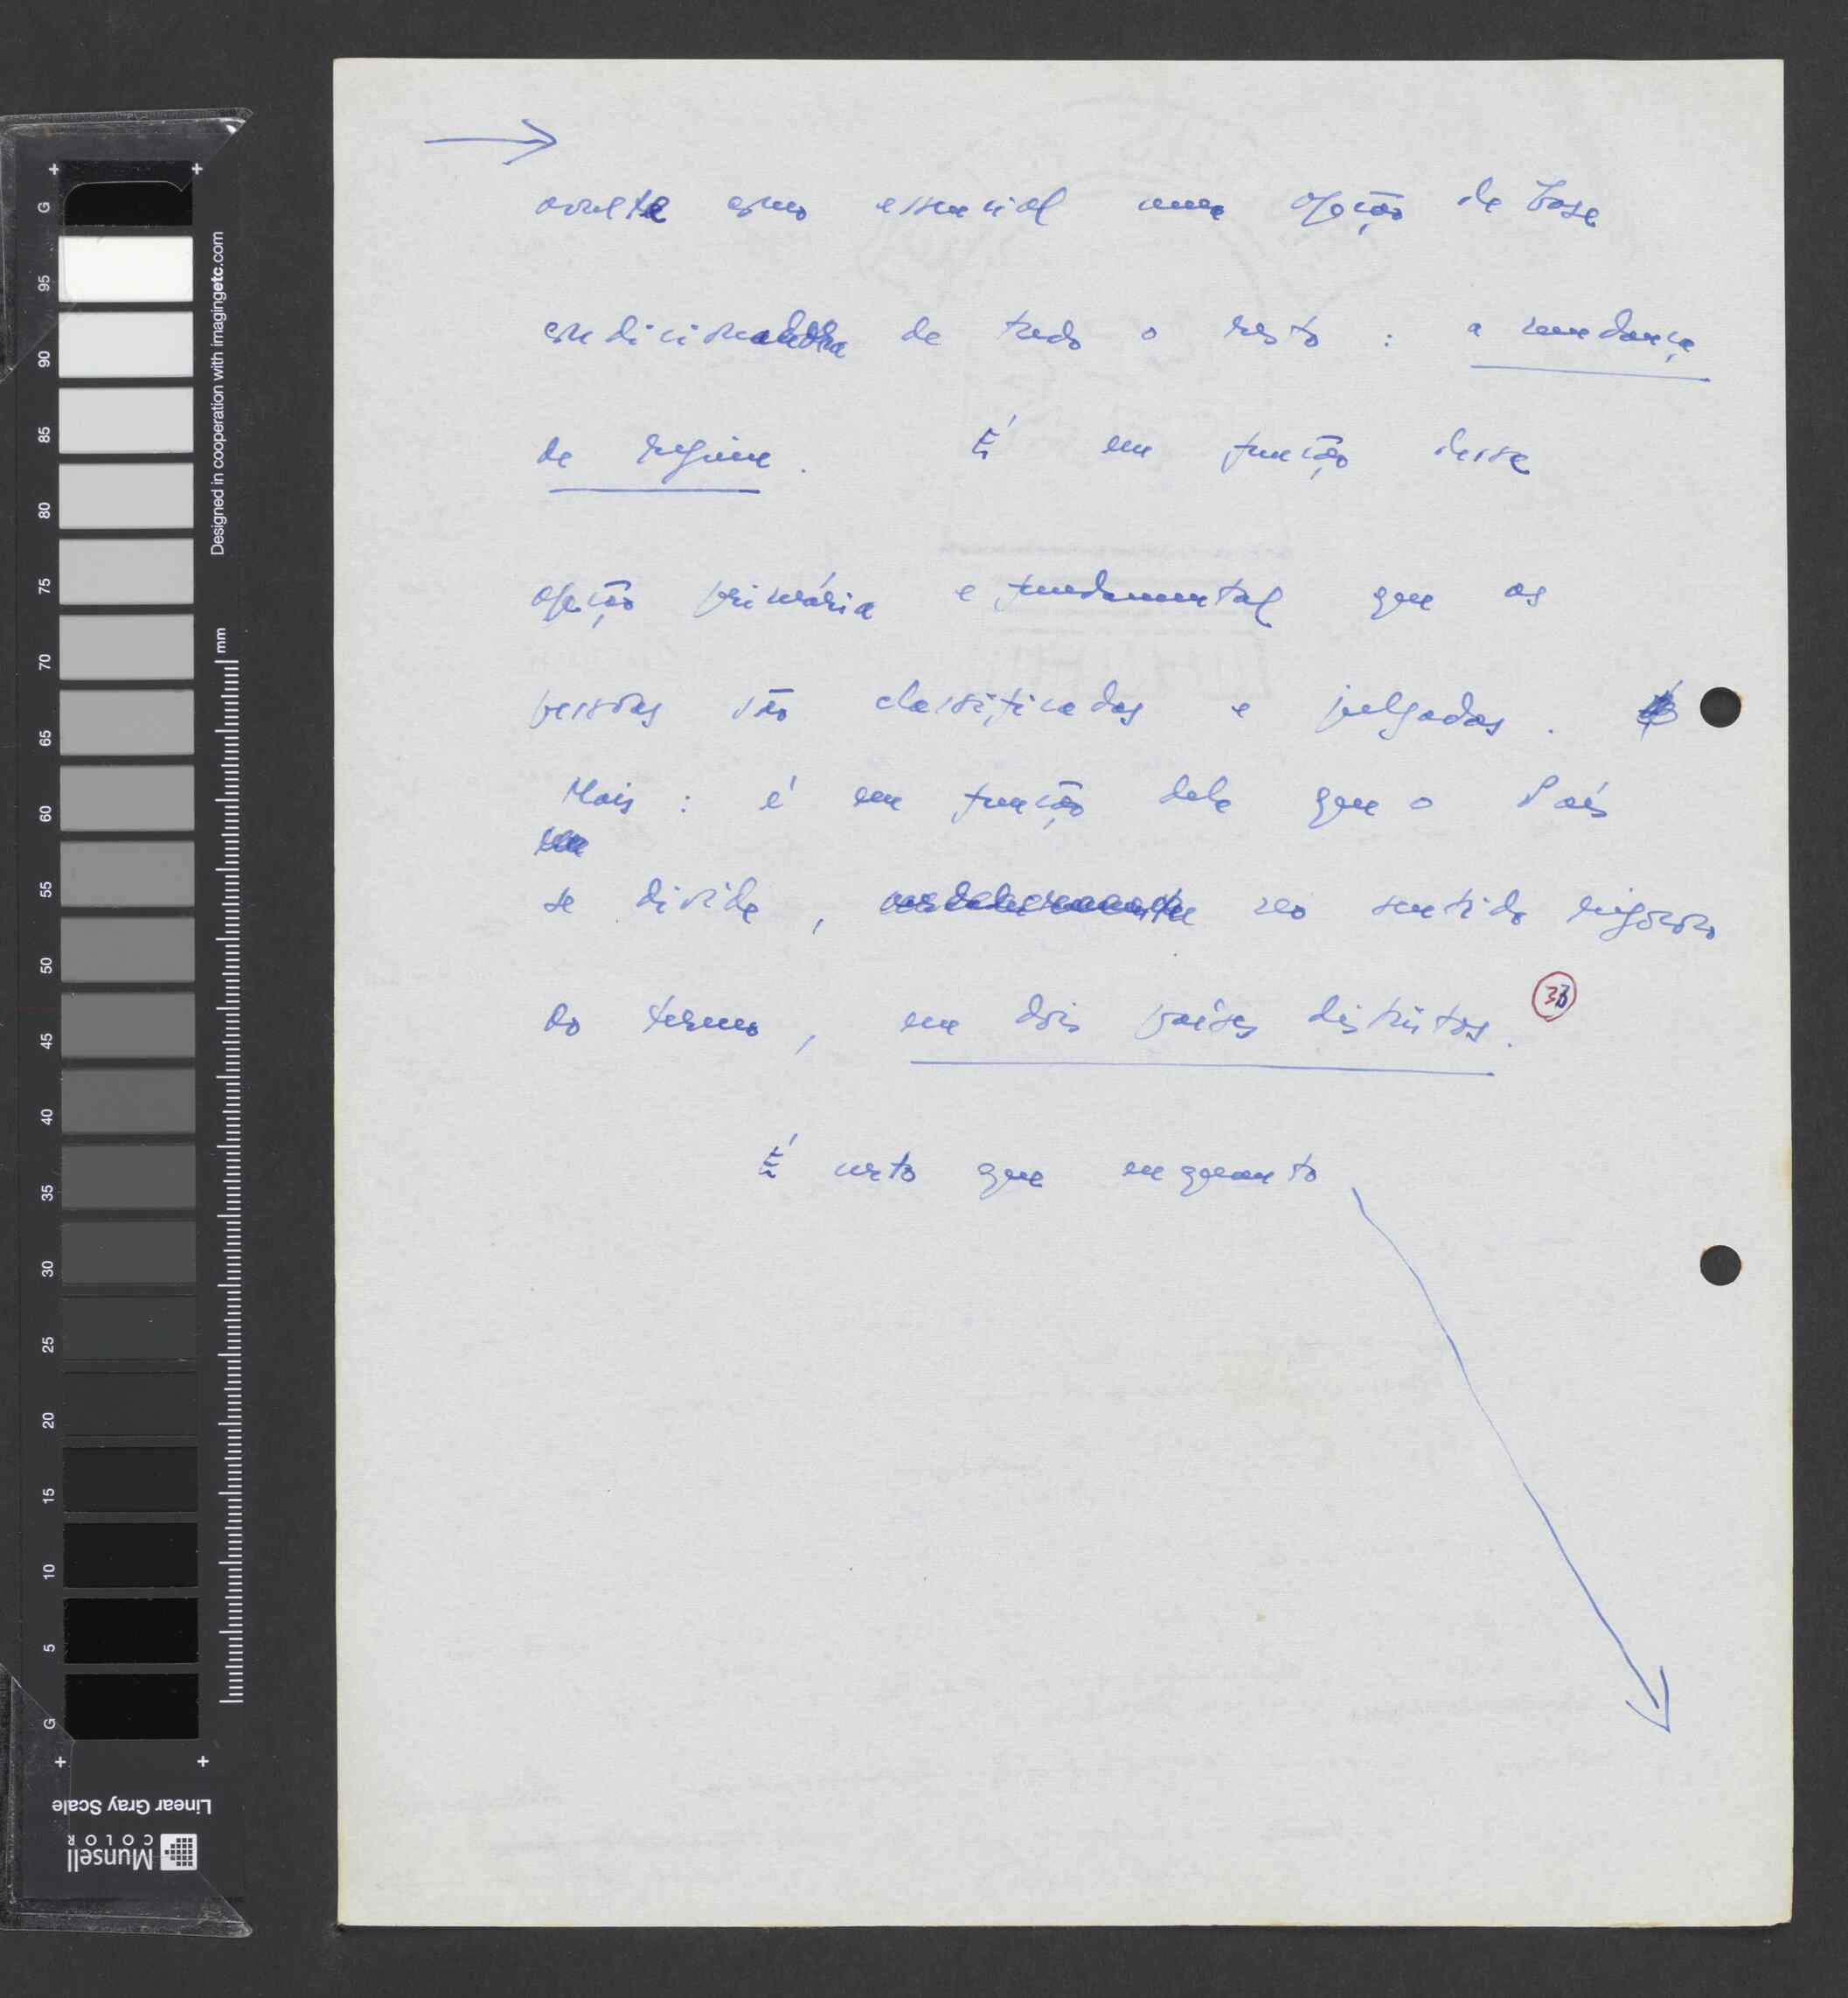 avulte como essencial uma opção de base
condicionadora de tudo o resto : a mudança
de regime . É em função dessa
opção primária e fundamental que as
pessoas são classificadas e julgadas .
Mais : é em função dela que o País
se divide , no sentido rigoroso
do termo , em dois países distintos .
É certo que enquanto
G 95 90 85 80 75 70 65 60 55 50 45 40 35 30 25 20 15 10 5 G
Designed in cooperation with imagingetc.com
mm
Linear Gray Scale
Munsell
COLOR